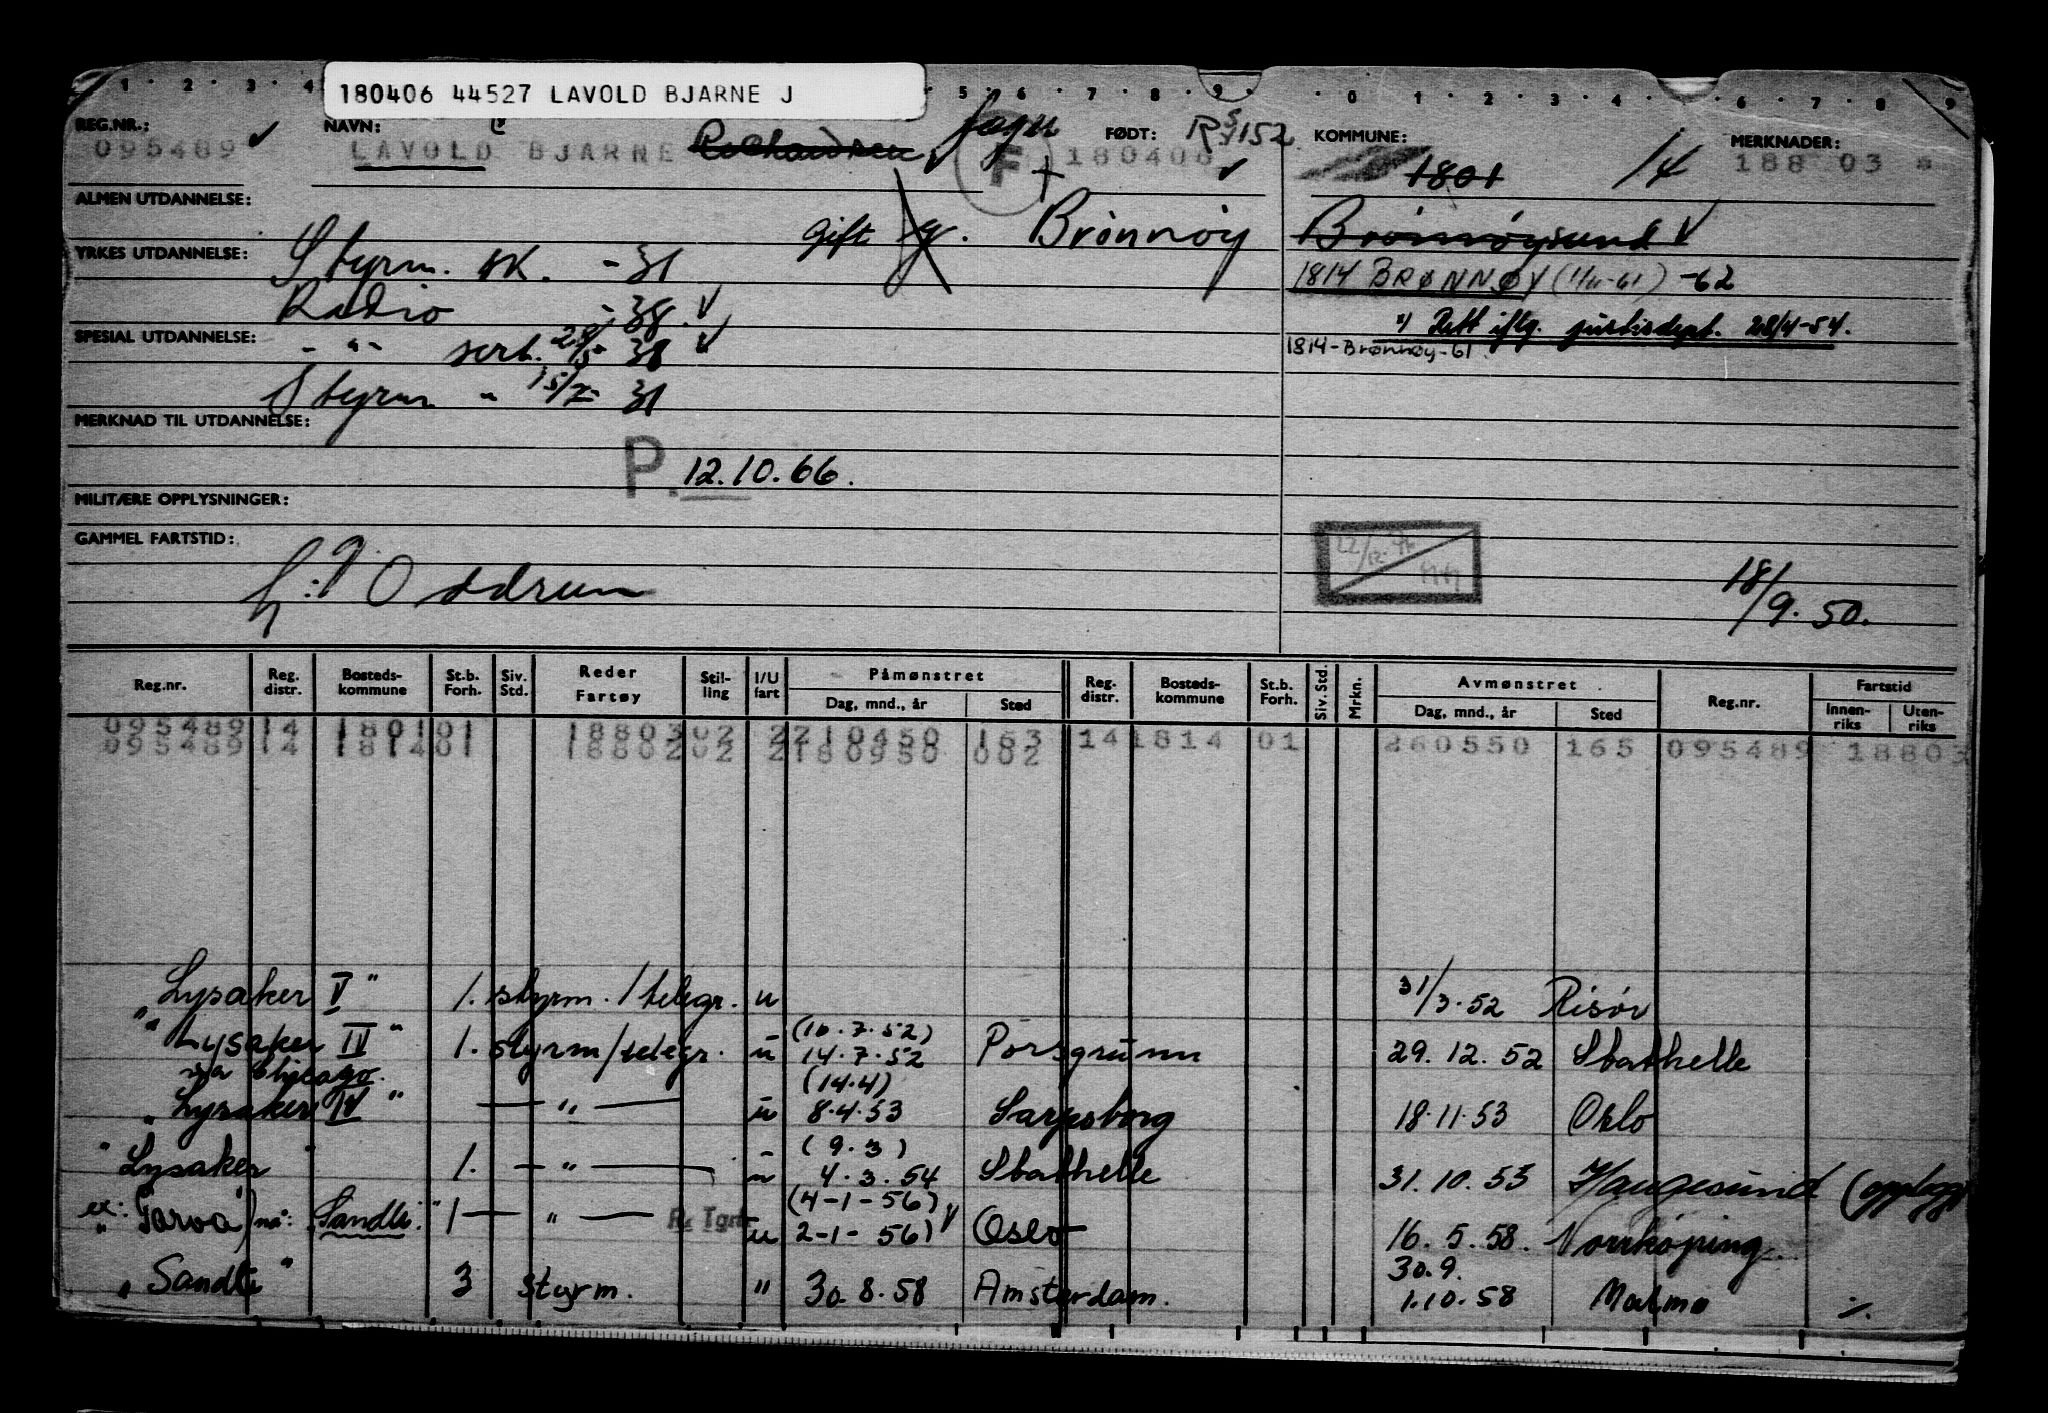 180406 44527 LAVOLD BJARNE J
REG.NR.: NAVN: FØDT: KOMMUNE: MERKNADER:
095489 LAVOLD BJARNE F 180406 1801 14 188 03
ALMEN UTDANNELSE:
Gift g. Brønnøy Brønnøysund
YRKES UTDANNELSE: Styrm. -31
1814 BRØNNØY -62
Radio -38.
Rett iflg. justisdept. 28/4-54.
SPESIAL UTDANNELSE: - " - sert. 28/5- 38
1814-Brønnøy-61
Styrm " 15/7- 31
MERKNAD TIL UTDANNELSE:
P. 12.10.66.
MILITÆRE OPPLYSNINGER:
GAMMEL FARTSTID:
Oddrun
18/9.50.
Reg.nr. Reg. distr. Bosteds-kommune St.b. Forh. Siv. Std. Reder Fartøy Stil-ling I/U fart Påmønstret Dag, mnd., år Sted Reg. distr. Bosteds-kommune St.b. Forh. Siv. Std. Mrkn. Avmønstret Dag, mnd., år Sted Reg.nr. Fartstid Innen-riks Uten-riks
095489 14 1801 01 18803 02 2 210450 163 14 1814 01 260550 165 095489 18803
095489 14 1814 01 18802 02 2 180950 002
"Lysaker V" 1. styrm. / telegr. u 31/3.52 Risør
(16.7.52)
"Lysaker IV" 1. styrm/telegr. u 14.7.52 Porsgrunn 29.12.52 Stathelle
via Chicago. (14.4)
"Lysaker IV" — " — u 8.4.53 Sarpsborg 18.11.53 Oslo
(9.3)
"Lysaker" 1. — " — u 4.3.54 Stathelle 31.10.53 Haugesund (opplagg)
(4-1-56)
ex: "Garva") nå: Sandli" 1 — " — R. Tgr. u 2-1-56) Oslo 16.5.58. Norrköping.
30.9.
"Sandli" 3 styrm. " 30.8.58 Amsterdam. 1.10.58 Malmø